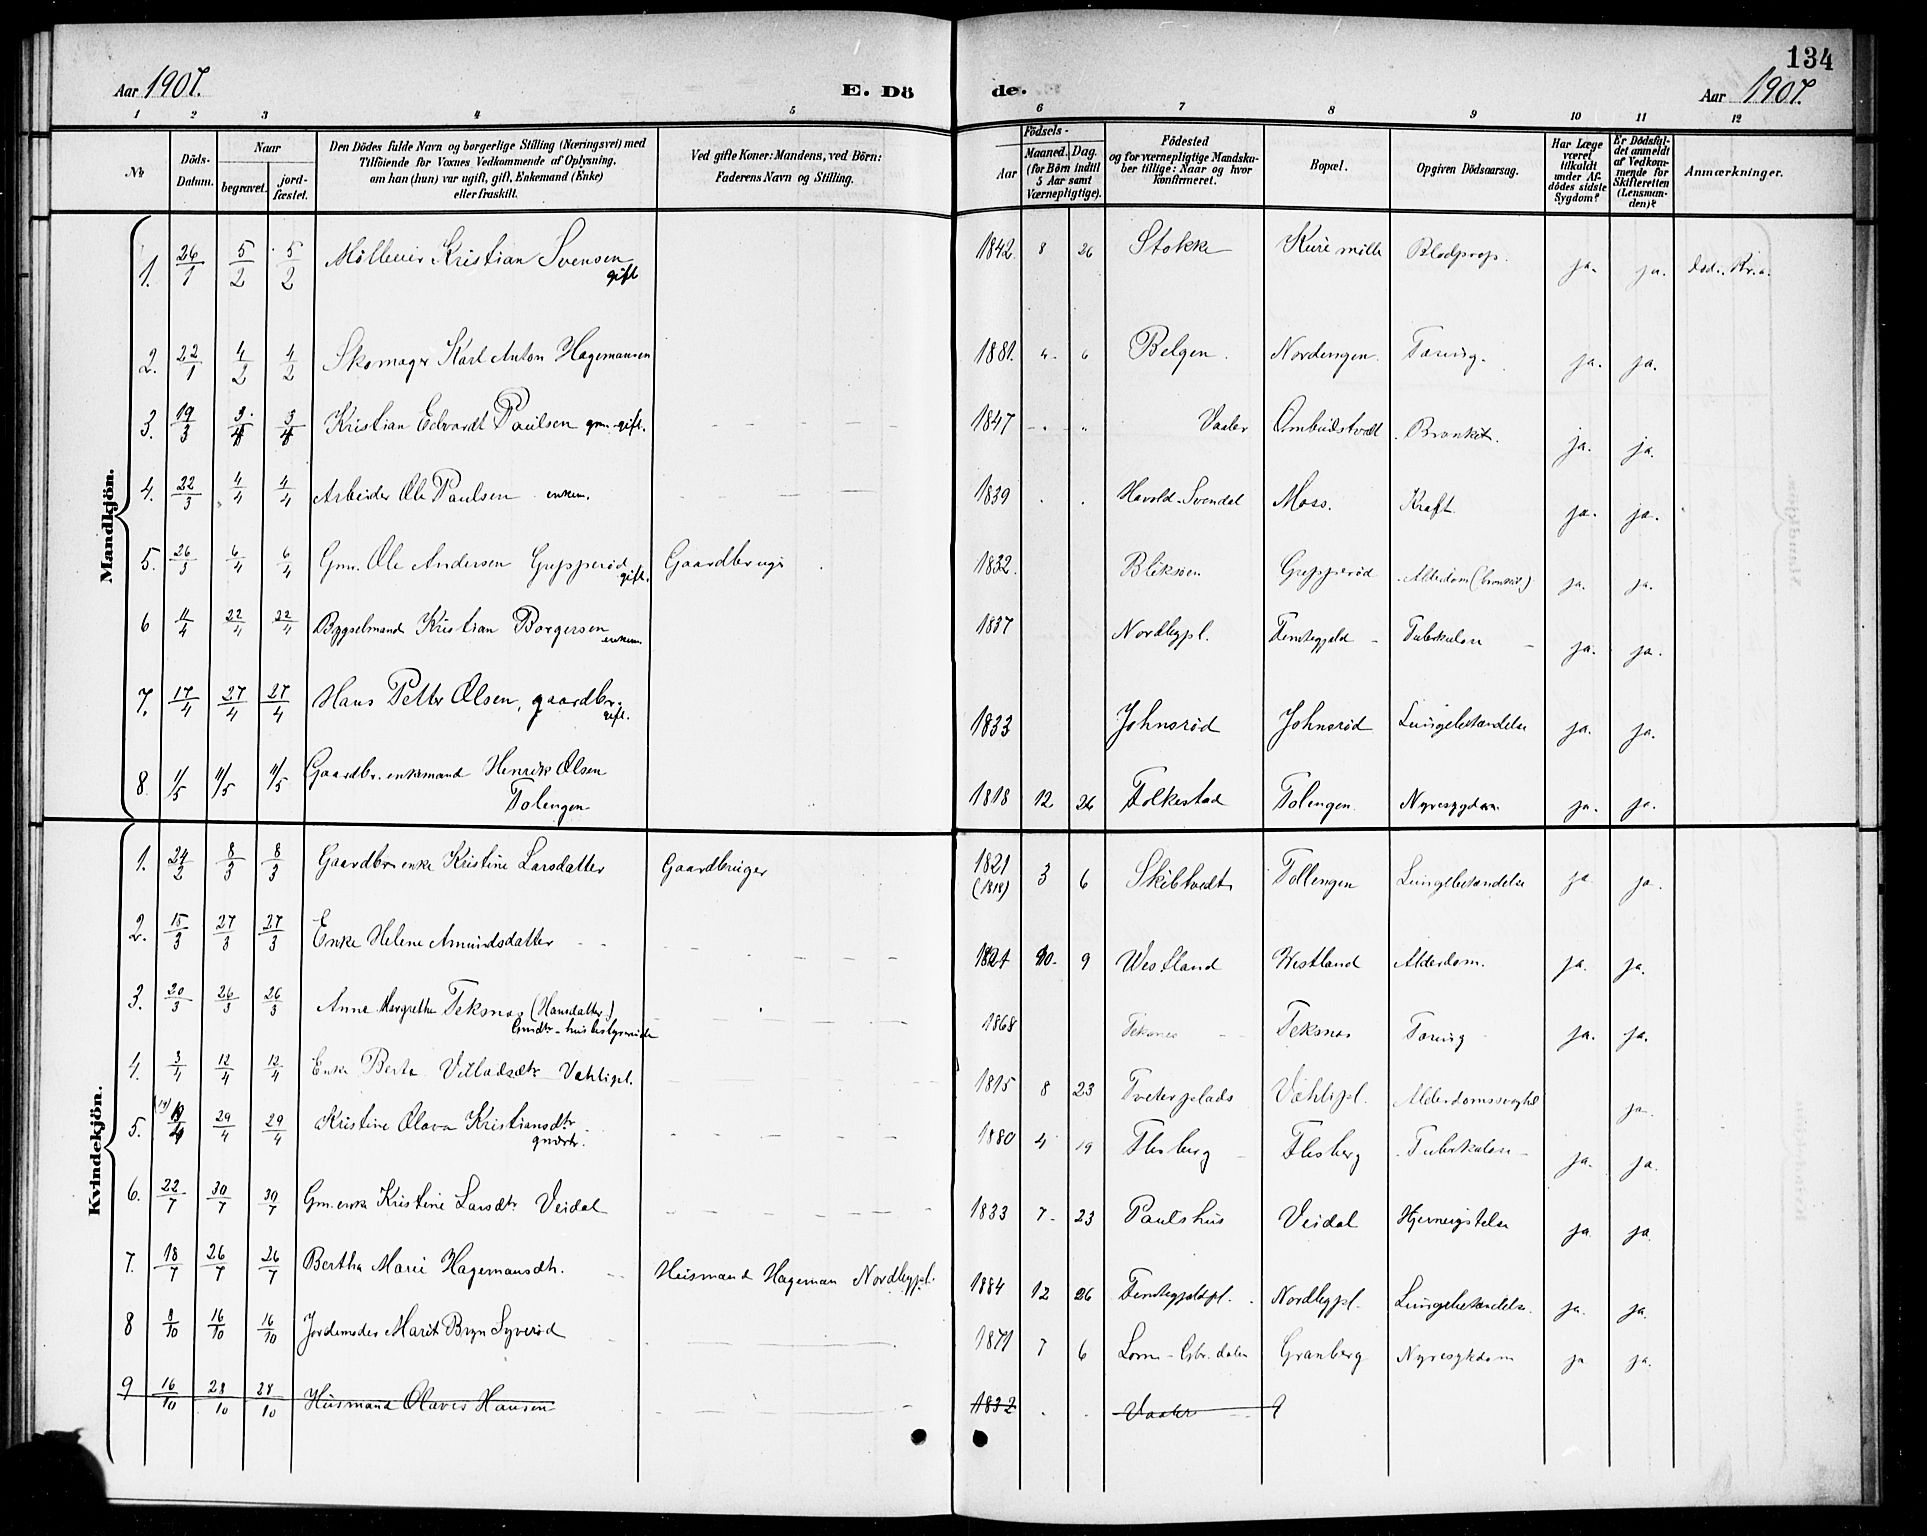 134
Aar 1907. E. Dö de. Aar 1907.
1 2 3 4 5 6 7 8 9 10 11 12
No
Döds-Datum.
Naar
begravet.
jord-fæstet.
Den Dödes fulde Navn og borgerlige Stilling (Næringsvei) med
Tilföiende for Voxnes Vedkommende af Oplysning,
om han (hun) var ugift, gift, Enkemand (Enke)
eller fraskilt.
Ved gifte Koner: Mandens, ved Börn:
Faderens Navn og Stilling.
Födsels-
Aar
Maaned. Dag.
(for Börn indtil
5 Aar samt
Værnepligtige).
Födested
og for værnepligtige Mandska-
ber tillige: Naar og hvor
konfirmeret.
Bopæl.
Opgiven Dödsaarsag.
Har Læge
været
tilkaldt
under Af-
dödes sidste
Sygdom?
Er Dödsfal-
det anmeldt
af Vedkom-
mende for
Skifteretten
(Lensman-
den)?
Anmærkninger.
Mandkjön.
1. 26/1 5/2 5/2 Mølleier Kristian Svensen gift 1842 8 26 Stokke Kure mölle Blodprop. ja. ja. död. Kr.a.
2. 22/1 4/2 4/2 Skomager Karl Anton Hagemansen 1881. 4. 6 Belgen. Nordengen. Tæring. ja. ja.
3. 19/3 3/4 3/4 Kristian Edvardt Paulsen gm. gift. 1847 Vaaler Ombudstvedt Bronkit. ja. ja.
4. 22/3 4/4 4/4 Arbeider Ole Paulsen enkem. 1839 Havold-Svendal Moss. Kræft. ja. ja.
5. 26/3 6/4 6/4 Gm. Ole Andersen Grepperød gift. Gaardbruger 1832. Bliksøen Grepperød Alderdom (bronkit.) ja. ja.
6 11/4 22/4 22/4 Bygselmand Kristian Borgersen enkem. 1837 Nordbypl. Femtegjeld Tuberkulose ja. ja.
7. 17/4 27/4 27/4 Hans Petter Olsen, gaardbr. gift. 1833 Johnsrød Johnsrød Lungebetændelse ja. ja.
8. 1/5 11/5 11/5 Gaardbr. enkemand Henrik Olsen
Tolengen 1818 12 26 Folkestad Tolengen. Nyresygdom ja. ja.
Kvindekjön.
1. 24/2 8/3 8/3 Gaardbr. enke Kristine Larsdatter Gaardbruger 1821 (1818) 3 6 Skibtvedt Tollengen Lungebetændelse ja ja.
2. 15/3 27/3 27/3 Enke Helene Amundsdatter 1821 10. 9 Westland Westland Alderdom. ja. ja.
3. 20/3 26/3 26/3 Anne Margrethe Teksnæs (Hansdatter)
Gmdtr - husbestyrerinde 1868 Teksnes Teksnæs Tæring ja. ja.
4. 3/4 12/4 12/4 Enke Berte Villadsdtr Vahlipl. 1815 8 23 Tveterplads Vahlipl. Alderdomssvaghed ja.
5. (19) 19/4 29/4 29/4 Kristine Olava Kristiansdtr
1880 4 19 Flesberg Flesberg Tuberkulose ja. ja.
6. 22/7 30/7 30/7 Gm. enke Kristine Larsdtr Veidal 1833 7. 23 Paulshus Veidal ja. ja.
7. 18/7 26/7 26/7 Bertha Marie Hagemansdtr. Husmand Hageman Nordbypl. 1884 12 26 Femtegjeldpl. Nordbypl. Lungebetændelse. ja. ja.
8 8/10 16/10 16/10 Jordemoder Marit Bryn Syverød 1871 7 6 Lom - Gbr. dalen Granberg Nyresykdom ja ja.
9 16/10 28/10 28/10 Husmand Olaves Hansen 1832 Vaaler